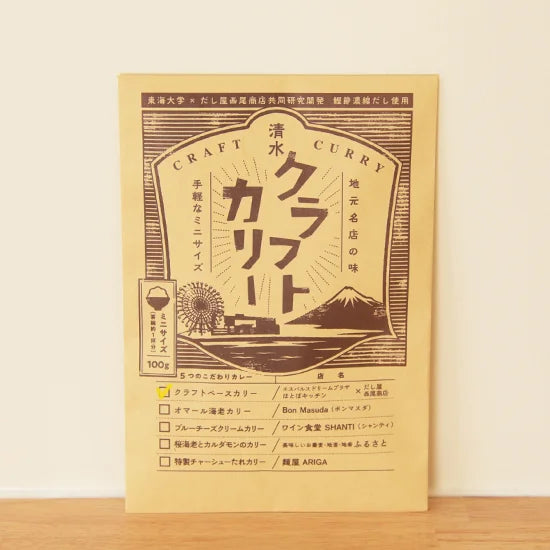 東海大学 × だし屋西尾商店共同研究開発 鰹節濃縮だし使用
CRAFT CURRY
清水
クラフト
カリー
地元名店の味
手軽なミニサイズ
ミニサイズ
100g
5つのこだわりカレー 店名
クラフトベースカリー / エスパルスドリームプラザ はとばキッチン × だし屋 西尾商店
オマール海老カリー / Bon Masuda(ボンマスダ)
ブルーチーズクリームカリー / ワイン食堂 SHANTI(シャンティ)
桜海老とカルダモンのカリー / 美味しいお蕎麦・地酒・地肴 ふるさと
特製チャーシューたれカリー / 麺屋 ARIGA